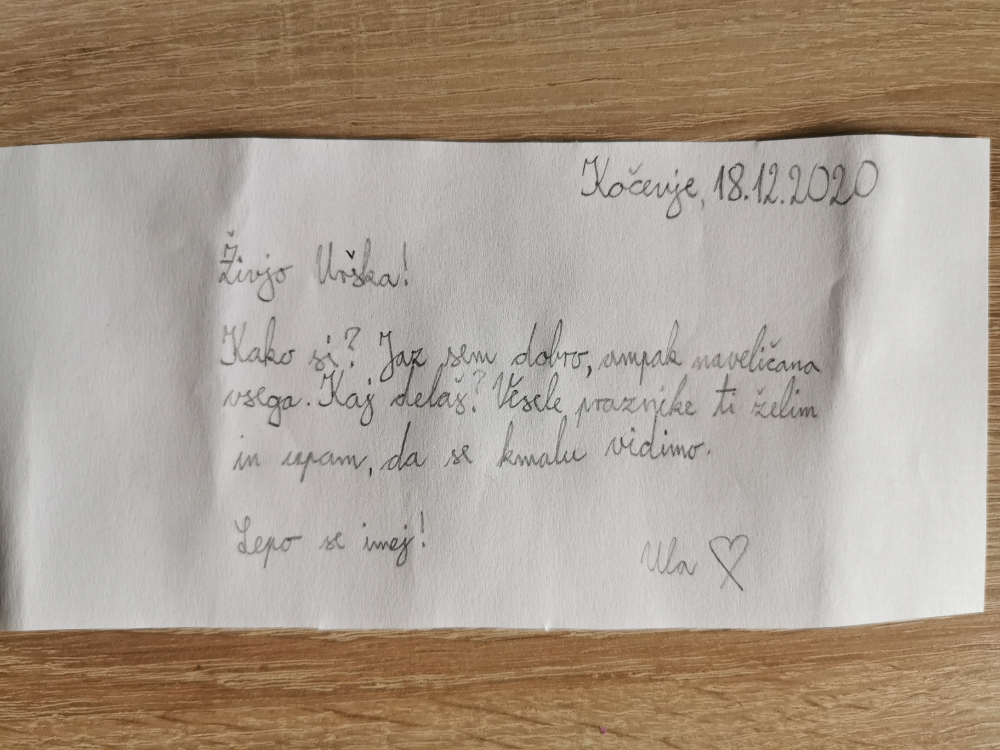 Kočevje, 18.12.2020
Živjo Urška!
Kako si? Jaz sem dobro, ampak naveličana
vsega. Kaj delaš? Vesele praznike ti želim
in upam, da se kmalu vidimo.
Lepo se imej!
Ula ♡